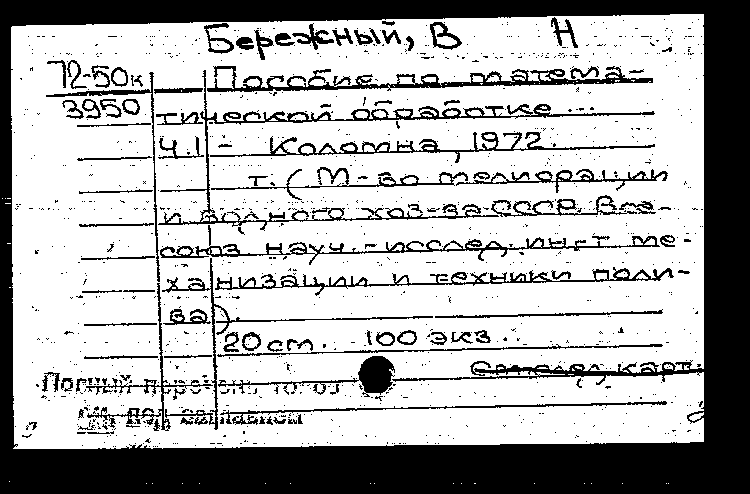 Бережный, В Н
72-50к Пособие по матема-
3950 тической обработке ...
Ч.I - Коломна, 1972.
т. (М-во мелиорации
и водного хоз-ва СССР. Все-
союз. науч.-исслед. ин-т ме-
ханизации и техники поли-
ва).
20 см. 100 экз.
карт.
Полный перечень томов
см. под заглавием